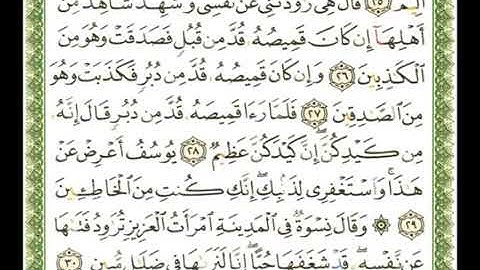 أَلِيمٌ ٢٥ قَالَ هِىَ رَٰوَدَتْنِى عَن نَّفْسِى وَشَهِدَ شَاهِدٌ مِّنْ
أَهْلِهَآ إِن كَانَ قَمِيصُهُۥ قُدَّ مِن قُبُلٍ فَصَدَقَتْ وَهُوَ مِنَ
ٱلْكَٰذِبِينَ ٢٦ وَإِن كَانَ قَمِيصُهُۥ قُدَّ مِن دُبُرٍ فَكَذَبَتْ وَهُوَ
مِنَ ٱلصَّٰدِقِينَ ٢٧ فَلَمَّا رَءَا قَمِيصَهُۥ قُدَّ مِن دُبُرٍ قَالَ إِنَّهُۥ
مِن كَيْدِكُنَّ ۖ إِنَّ كَيْدَكُنَّ عَظِيمٌ ٢٨ يُوسُفُ أَعْرِضْ عَنْ
هَٰذَا ۚ وَٱسْتَغْفِرِى لِذَنۢبِكِ ۖ إِنَّكِ كُنتِ مِنَ ٱلْخَاطِـِٔينَ
٢٩ ۞ وَقَالَ نِسْوَةٌ فِى ٱلْمَدِينَةِ ٱمْرَأَتُ ٱلْعَزِيزِ تُرَٰوِدُ فَتَىٰهَا
عَن نَّفْسِهِۦ ۖ قَدْ شَغَفَهَا حُبًّا ۖ إِنَّا لَنَرَىٰهَا فِى ضَلَٰلٍ مُّبِينٍ ٣٠